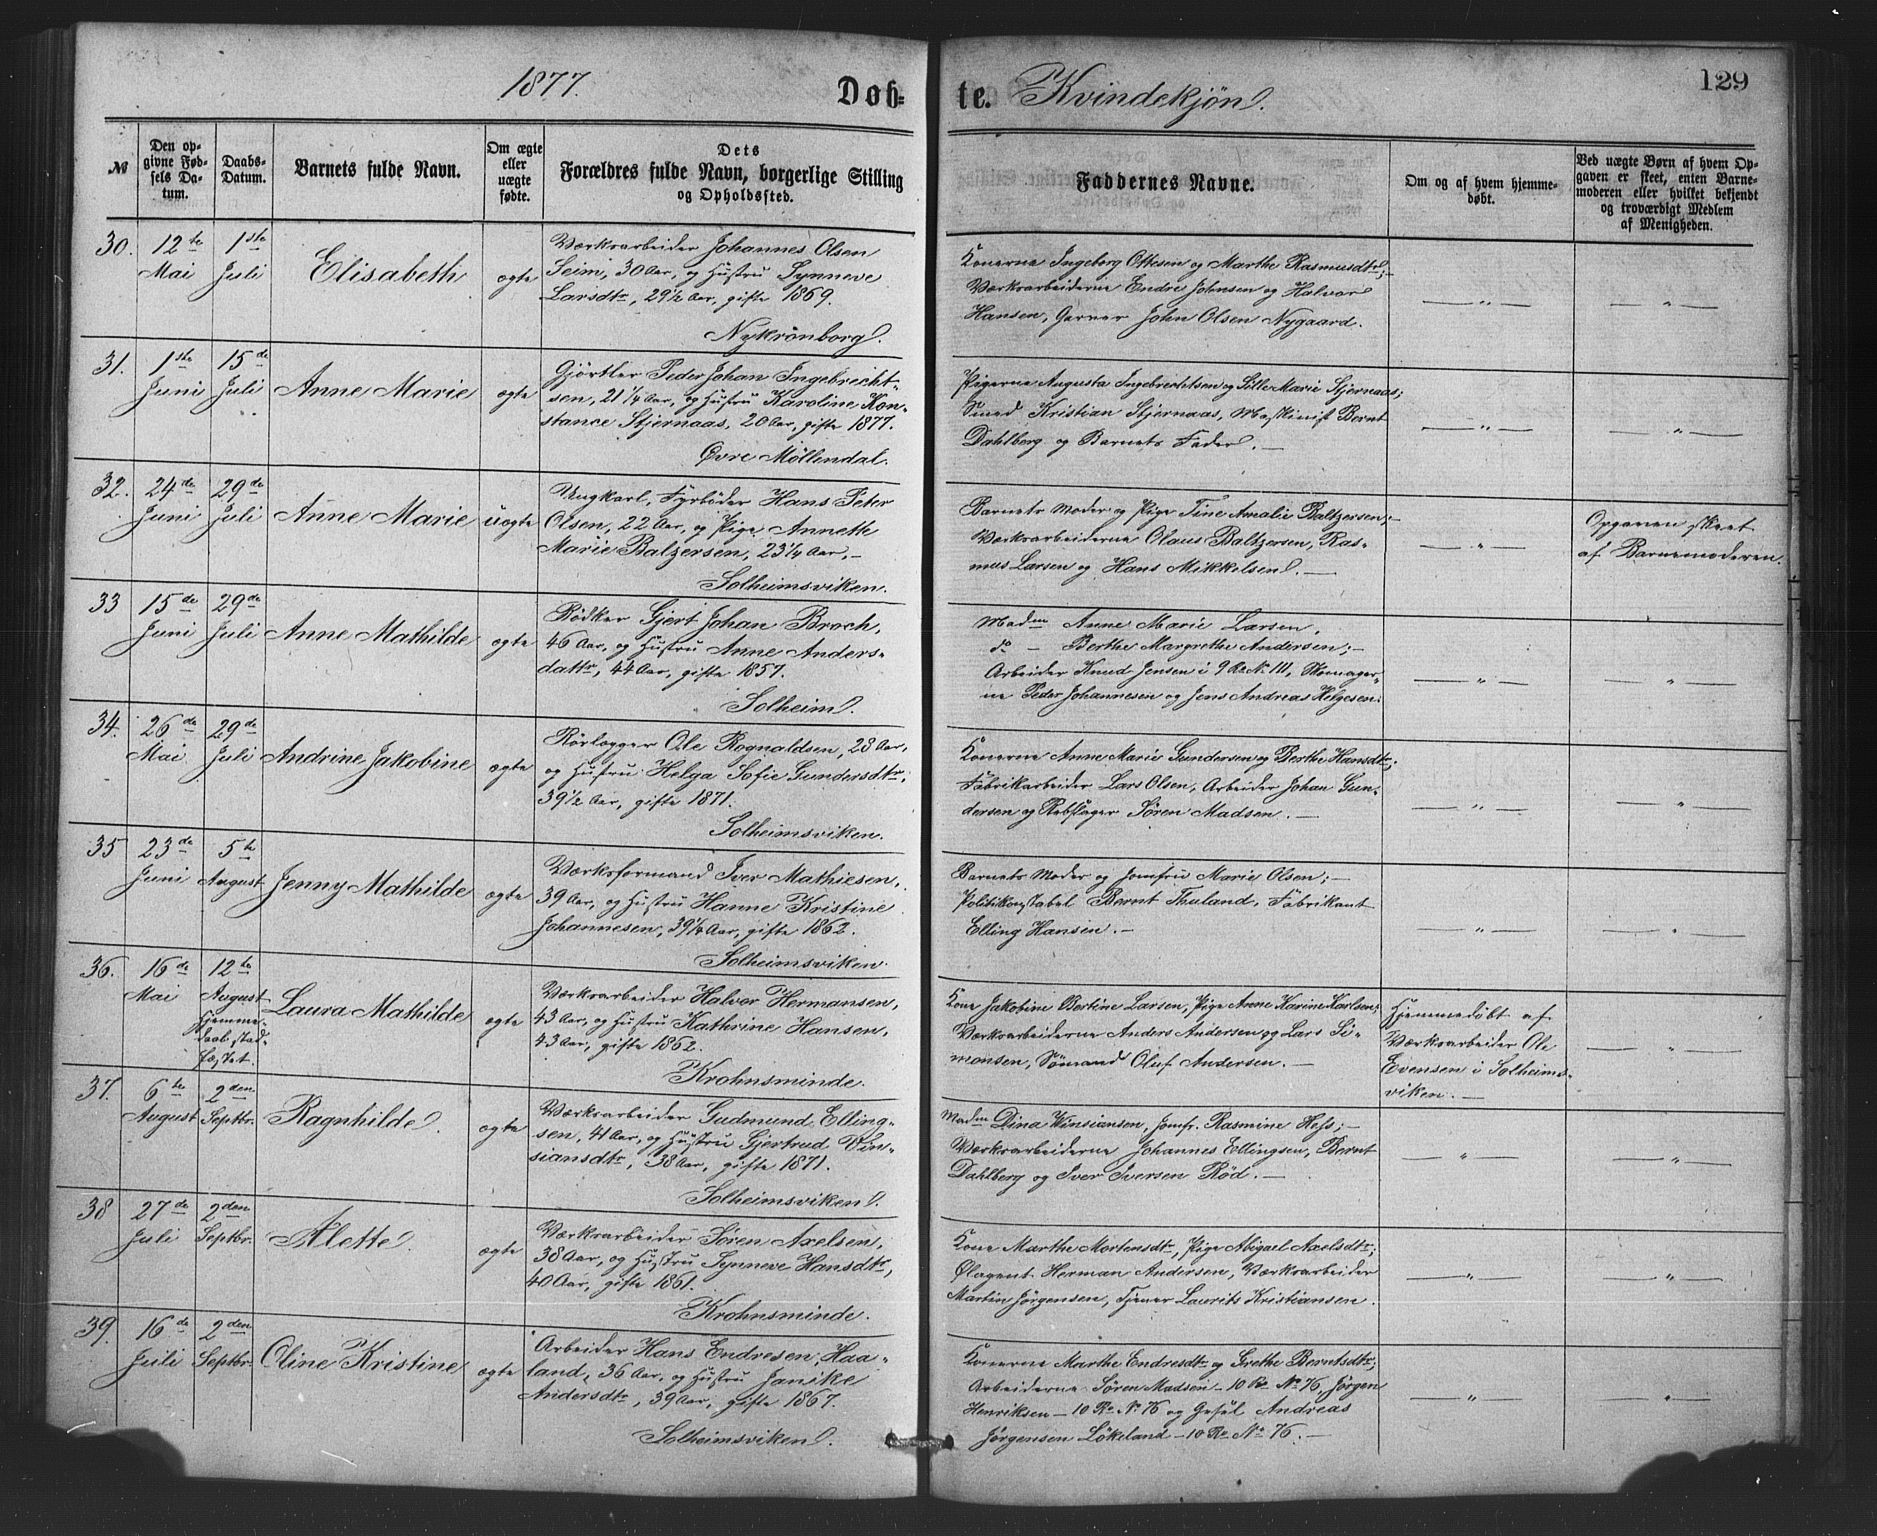 1877.
Døb-
te. Kvindekjøn.
129
№
Den op-
givne Fød-
sels Da-
tum.
Daabs-
Datum.
Barnets fulde Navn.
Om ægte
eller
uægte
fødte.
Dets
Forældres fulde Navn, borgerlige Stilling
og Opholdssted.
Faddernes Navne.
Om og af hvem hjemme-
døbt.
Ved uægte Børn af hvem Op-
gaven er skeet, enten Barne-
moderen eller hvilket bekjendt
og troværdigt Medlem
af Menigheden.
30. 12te Mai
1ste Juli
Elisabeth
ægte
Værksarbeider Johannes Olsen
Seim, 30 Aar, og Hustru Synneve
Larsdtr, 29½ Aar, gifte 1869.
Nykrönborg.
Konerne Ingeborg Ottesen og Marthe Rasmusdtr;
Værksarbeiderne Endre Johnsen og Halvor
Hansen, Garver John Olsen Nygaard.
— " —
— " —
31. 1ste Juni
15de Juli
Anne Marie
ægte
Gjørtler Peder Johan Ingebrecht-
sen, 21¼ Aar, og Hustru Karoline Kon-
stance Stjernaas, 20 Aar, gifte 1877.
Øvre Möllendal.
Pigerne Augusta Ingebrechtsen og Sille Marie Stjernaas;
Smed Kristian Stjernaas, Maskinist Bernt
Dahlberg og Barnets Fader. —
— " —
— " —
32. 24de Juni
29de Juli
Anne Marie
uægte
Ungkarl, Fyrbøder Hans Peter
Olsen, 22 Aar, og Pige Annethe
Marie Baltzersen, 23¼ Aar, —
Solheimsviken.
Barnets Moder og Pige Tine Amalie Baltzersen; —
Værksarbeiderne Olaus Baltzersen, Ras-
mus Larsen og Hans Mikkelsen. —
— " —
Opgaven skeet
af Barnemoderen.
33 15de Juni
29de Juli
Anne Mathilde
ægte
Bödker Gjert Johan Broch,
46 Aar, og Hustru Anne Anders-
datter, 44 Aar, gifte 1857.
Solheim.
Madm Anne Marie Larsen,
do — Berthe Margrethe Andersen; —
Arbeider Knud Jensen i 9 Ro No 111, Skomager-
ne Peder Johannesen og Jens Andreas Helgesen.
— " —
— " —
34. 26de Mai
29de Juli
Andrine Jakobine
ægte
Rörlægger Ole Rognaldsen, 28 Aar,
og Hustru Helga Sofie Gundersdtr,
39½ Aar, gifte 1871.
Solheimsviken.
Konerne Anne Marie Gundersen og Berthe Hansdtr;
Fabrikarbeider Lars Olsen, Arbeider Johan Gun-
dersen og Rebslager Sören Madsen. —
— " —
— " —
35 23de Juni
5te August
Jenny Mathilde
ægte
Værksformand Iver Mathiesen,
39 Aar, og Hustru Hanne Kristine
Johannesen, 39¼ Aar, gifte 1862.
Solheimsviken.
Barnets Moder og Jomfru Marie Olsen; —
Politikonstabel Bernt Thuland, Fabrikant
Elling Hansen. —
— " —
— " —
36. 16de Mai
12te August
Hjemme-
daab stad-
fæstet.
Laura Mathilde
ægte
Værksarbeider Halvor Hermansen,
43 Aar, og Hustru Kathrine Hansen,
43 Aar, gifte 1862.
Krohnsminde.
Kone Jakobine Bertine Larsen, Pige Anne Karine Karlsen;
Værksarbeiderne Anders Andersen og Lars Si-
monsen, Sömand Oluf Andersen. —
Hjemmedöbt af
Værksarbeider Ole
Evensen i Solheims-
viken. —
— " —
37. 6te August
2den Septbr.
Ragnhilde.
ægte
Værksarbeider Gudmund Elling-
sen, 41 Aar, og Hustru Gjertrud Vin-
siansdtr, 38 Aar, gifte 1871.
Solheimsviken.
Madm Dina Winsiansen, Jomfr. Rasmine Hess; —
Værksarbeiderne Johannes Ellingsen, Bernt
Dahlberg og Iver Iversen Röd. —
— " —
— " —
38 27de Juli
2den Septbr.
Alette.
ægte
Værksarbeider Sören Axelsen,
38 Aar, og Hustru Synneve Hansdtr,
40 Aar, gifte 1861.
Krohnsminde.
Kone Marthe Mortensdtr, Pige Abigael Axelsdtr;
Ølagent Herman Andersen, Værksarbeider
Martin Jörgensen, Tjener Laurits Kristiansen.
— " —
— " —
39. 16de Juli
2den Septbr.
Oline Kristine
ægte
Arbeider Hans Endresen Haa-
land, 36 Aar, og Hustru Janike
Andersdtr, 39 Aar, gifte 1867.
Solheimsviken.
Konerne Marthe Endresdtr og Grethe Berntsdtr;
Arbeiderne Sören Madsen — 10 Ro No 76, Jörgen
Henriksen — 10 Ro No 76 og Andreas
Jörgensen Lökeland — 10 Ro No 76. —
— " —
— " —